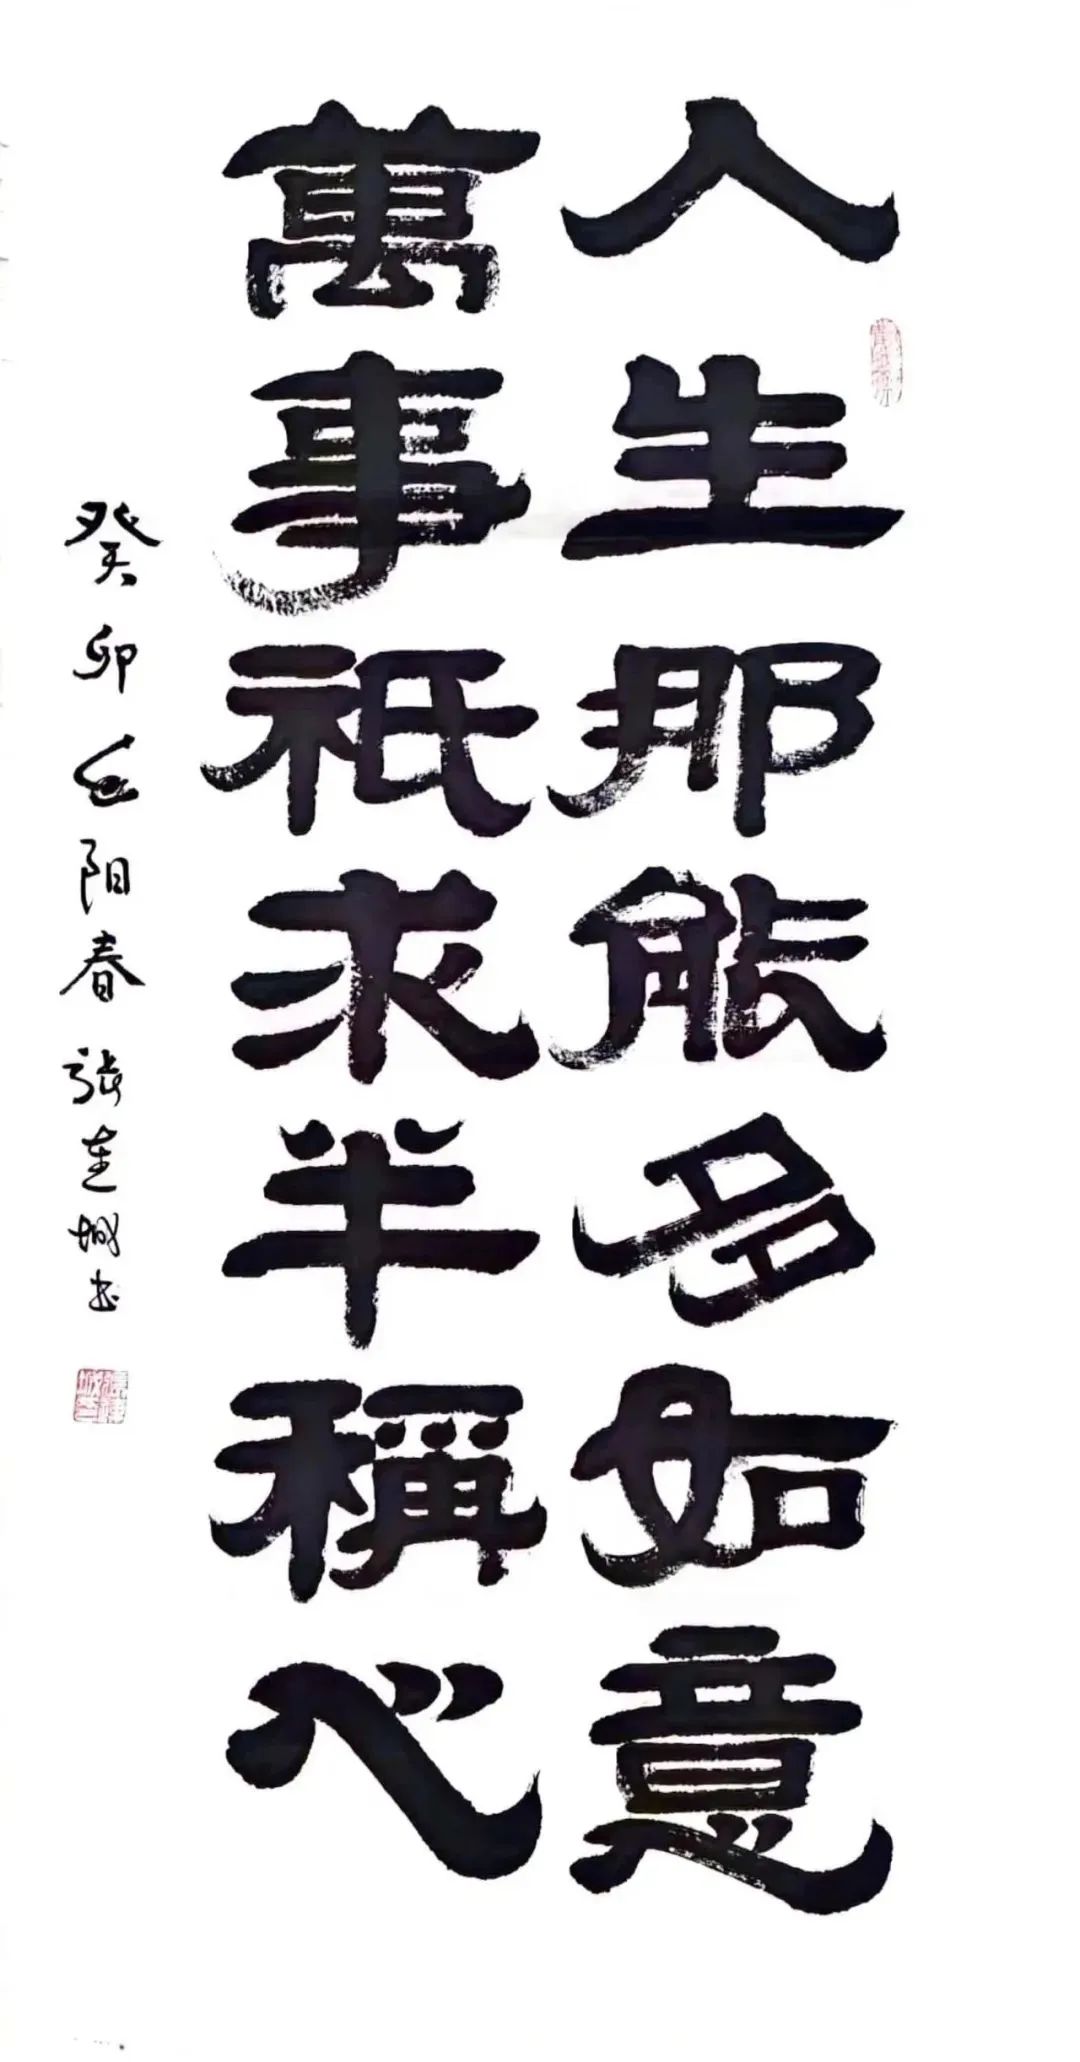 人生那能多如意
萬事祇求半稱心
癸卯 阳春 张建城书